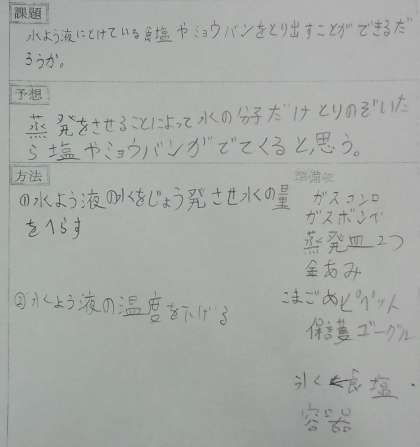 課題
水よう液にとけている食塩やミョウバンをとり出すことができるだ
ろうか。
予想
蒸発をさせることによって水の分子だけとりのぞいた
ら塩やミョウバンがでてくると思う。
方法
①水よう液の水をじょう発させ水の量
をへらす
②水よう液の温度を下げる
準備物
ガスコンロ
ガスボンベ
蒸発皿2つ
金あみ
こまごめピペット
保護ゴーグル
氷←食塩
容器